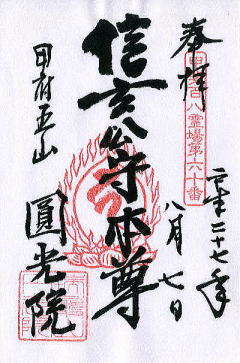 奉拝
甲斐百八霊場第六十番
平成二十七年
八月七日
信玄公守本尊
甲府五山
圓光院